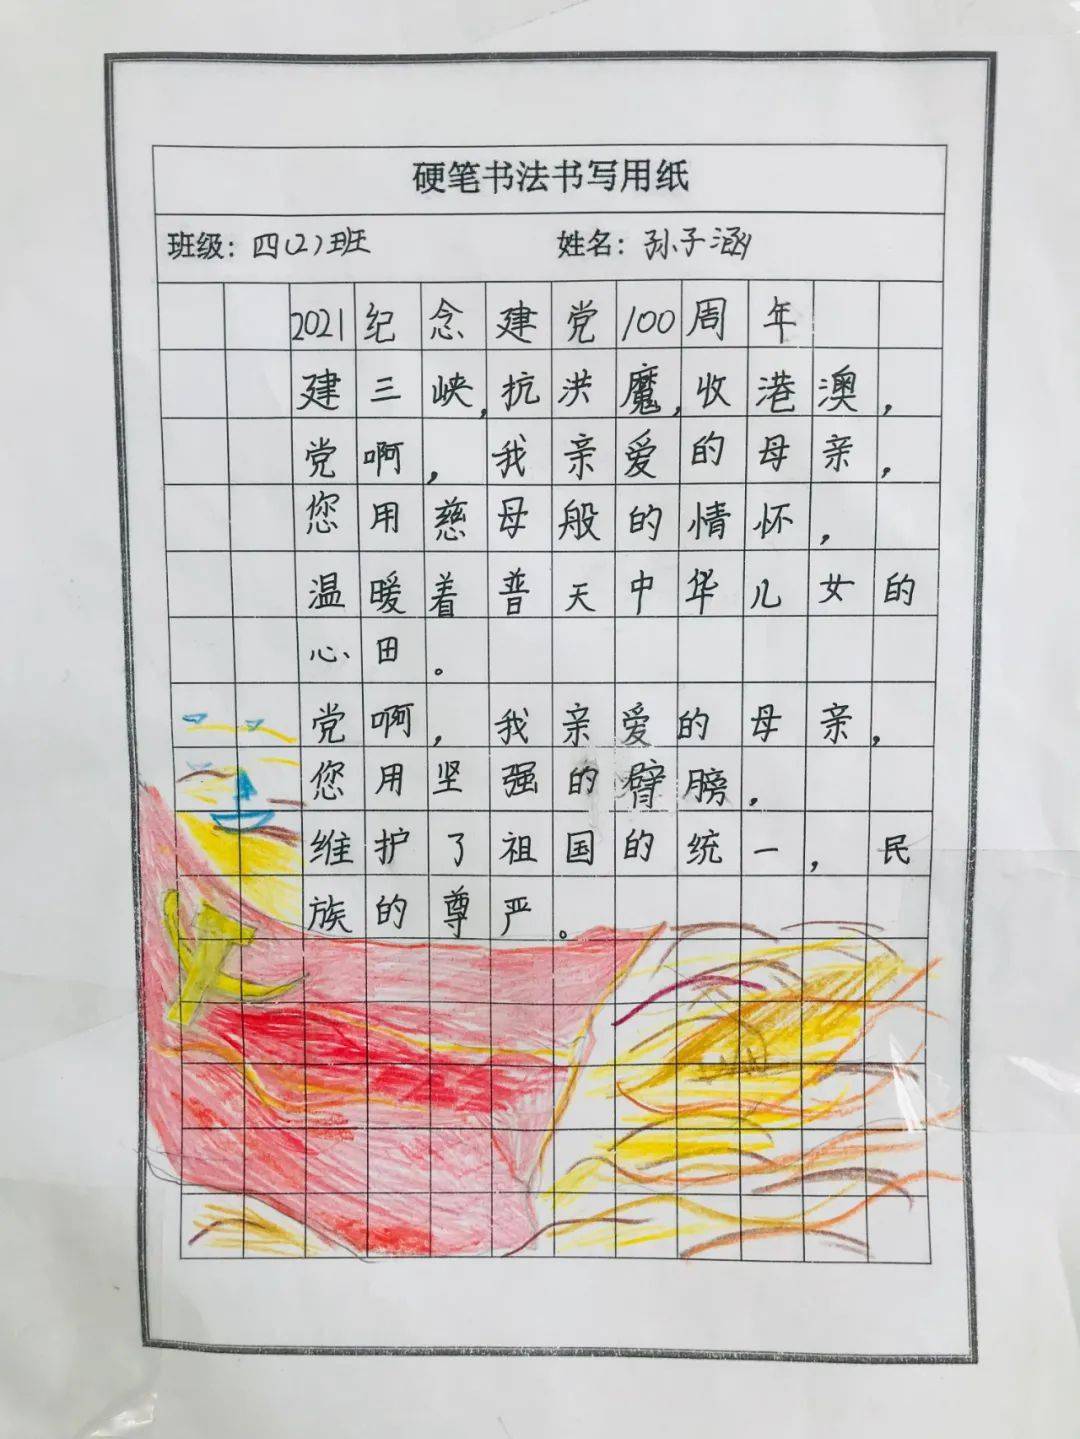 硬笔书法书写用纸
班级：四（2）班 姓名：孙子涵
2021纪念建党100周年
建三峡，抗洪魔，收港澳，
党啊，我亲爱的母亲，
您用慈母般的情怀，
温暖着普天中华儿女的
心田。
党啊，我亲爱的母亲，
您用坚强的臂膀，
维护了祖国的统一，民
族的尊严。